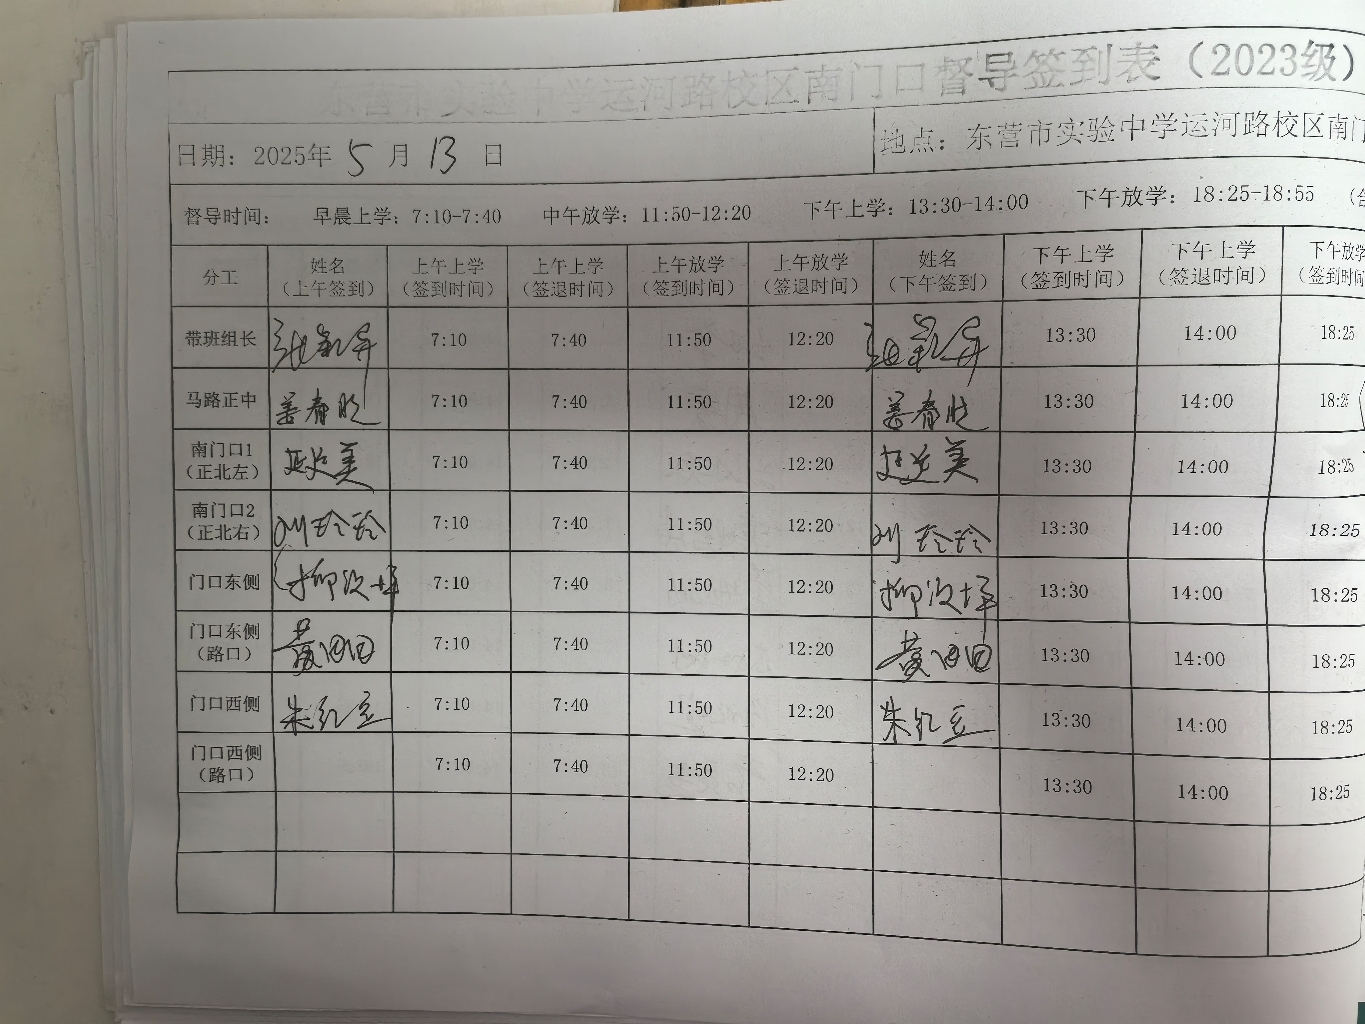 东营市实验中学运河路校区南门口督导签到表（2023级）
日期：2025年 5 月 13 日 地点：东营市实验中学运河路校区南门
督导时间： 早晨上学：7:10-7:40 中午放学：11:50-12:20 下午上学：13:30-14:00 下午放学：18:25-18:55
分工 姓名（上午签到） 上午上学（签到时间） 上午上学（签退时间） 上午放学（签到时间） 上午放学（签退时间） 姓名（下午签到） 下午上学（签到时间） 下午上学（签退时间） 下午放学（签到时间
带班组长 7:10 7:40 11:50 12:20 13:30 14:00 18:25
马路正中 姜春晓 7:10 7:40 11:50 12:20 姜春晓 13:30 14:00 18:25
南门口1（正北左） 7:10 7:40 11:50 12:20 13:30 14:00 18:25
南门口2（正北右） 刘玲玲 7:10 7:40 11:50 12:20 刘玲玲 13:30 14:00 18:25
门口东侧 7:10 7:40 11:50 12:20 13:30 14:00 18:25
门口东侧（路口） 黄田田 7:10 7:40 11:50 12:20 黄田田 13:30 14:00 18:25
门口西侧 朱红立 7:10 7:40 11:50 12:20 朱红立 13:30 14:00 18:25
门口西侧（路口） 7:10 7:40 11:50 12:20 13:30 14:00 18:25